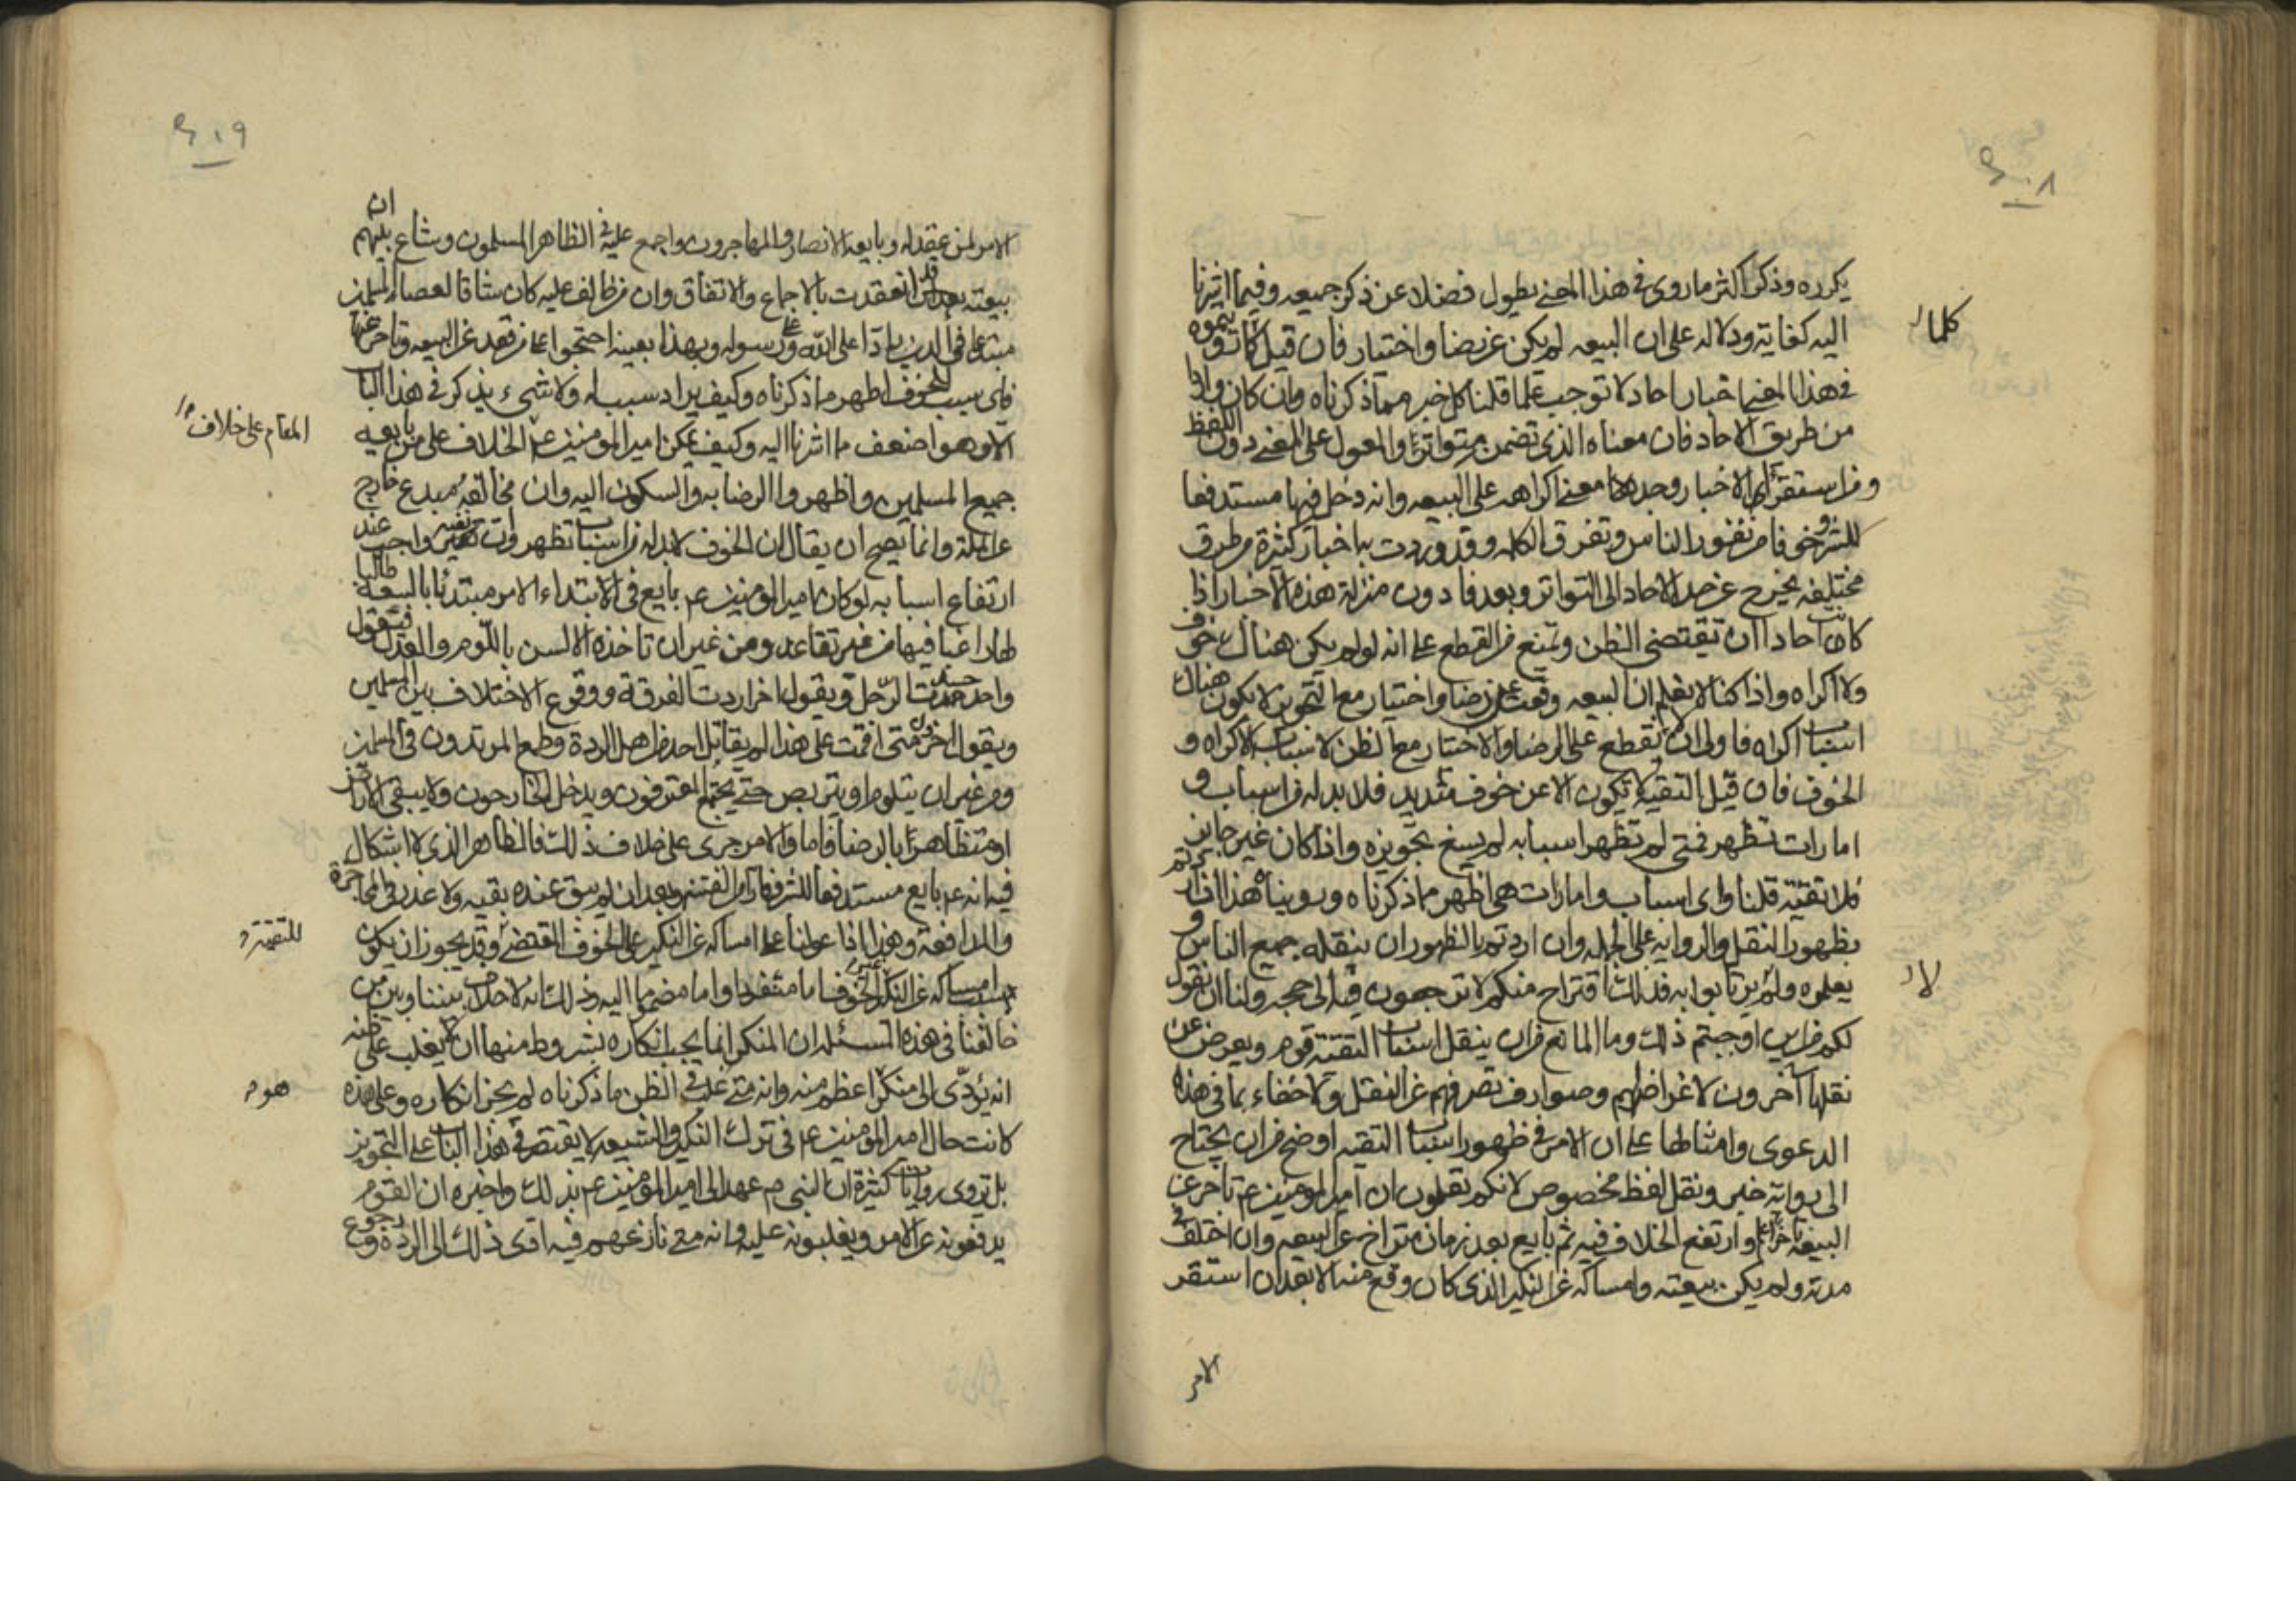 ٤٠٨
يكرره وذكر اكثر ما روى في هذا المعنى يطول فضلا عن ذكر جميعه وفيما اشرنا
اليه كفاية ودلالة على ان البيعة لم يكن عن رضا واختيار فان قيل كلما تروونه
في هذا المعنى اخبار احاد لا توجب علما قلنا كل خبر مما ذكرناه وان كان واردا
من طريق الاحاد فان معناه الذي تضمنه متواتر والمعول على المعنى دون اللفظ
ومن استقرأ الاخبار وجد معنى اكراهه على البيعة وانه دخل فيها مستدفعا
للشر وخوفا من تفور الناس وتفرق الكلمة وقد وردت به اخبار كثيرة من طرق
مختلفة يخرج عن حد الاحاد الى التواتر وبعد فادون منزلة هذه الاخبار اذا
كانت احادا ان تقتضى الظن وتمنع من القطع على انه لو لم يكن هناك خوف
ولا اكراه واذا كنا لا نعلم ان البيعة وقعت عن رضا واختيار مع التجويز لان يكون هناك
اسباب اكراه فاولى ان لا نقطع على الرضا والاختيار مع الظن لاسباب الاكراه و
الخوف فان قيل التقية لا تكون الا عن خوف شديد فلا بد له من اسباب و
امارات تظهر فمتى لم تظهر اسبابه لم يسغ تجويزه واذا كان غير جايز
فلا تقية قلنا واى اسباب وامارات هي اظهر مما ذكرناه وروينا هذا ان اردتم
بظهورا النقل والرواية على الجملة وان اردتم بالظهور ان ينقله جميع الناس و
يعلموه ولا يرتابوا به فذلك اقتراح منكم لا ترجعون فيه الى حجة ولنا ان نقول
لكم من اين اوجبتم ذلك وما المانع من ان ينقل اسباب التقية قوم ويعرض عن
نقلها آخرون لاغراض لهم وصوارف تصرفهم عن النقل ولا خفاء بما في هذه
الدعوى وامثالها على ان الامر في ظهور اسباب التقية اوضح من ان يحتاج
الى رواية خبر ونقل لفظ مخصوص لانكم تعلمون ان امير المومنين ع تاخر عن
البيعة تاخرا علم وارتفع الخلاف فيه ثم بايع بعد زمان متراخ عن البيعة وان اختلف في
مدته ولم يكن بيعته وامساكه عن النكير الذي كان وقع منه الا بعد ان استقر
كلما
لا
الامر
٤٠٩
الامر لمن عقد له وبايعه الانصار والمهاجرون واجمع عليه في الظاهر المسلمون وشاع بينهم ان
بيعته قد انعقدت بالاجماع والاتفاق وان من خالف عليه كان شاقا لعصا المسلمين
مبتدعا في الدين رادا على الله وعلى رسوله وبهذا بعينه احتجوا على من قعد عن البيعة وتاخر عنها
فاى سبب للخوف اظهر مما ذكرناه وكيف يراد سبب له ولا شيء يذكر في هذا الباب
الا وهو اضعف مما اشرنا اليه وكيف يمكن امير المومنين ع الخلاف على من بايعه
جميع المسلمين واظهروا الرضا به والسكون اليه وان مخالفه مبدع خارج
عن الملة وانما يصح ان يقال ان الخوف لا بد له من اسباب تظهر وان نفيه واجب عند
ارتفاع اسبابه لو كان امير المومنين ع بايع في الابتداء الامر مبتدئا بالبيعة طالبا
لها راغبا فيها من غير تقاعد ومن غير ان تاخذه الالسن باللوم والعذل فيقول
واحد حسدت الرجل ويقول اخر اردت الفرقة ووقوع الاختلاف بين المسلمين
ويقول اخر متى اقمت على هذا لم يقاتل احد من اهل الردة وطمع المرتدون في المسلمين
ومن غير ان يتلوم او يتربص حتى يجتمع المتفرقون ويدخل الخارجون ولا يبقى الا راض
او متظاهرا بالرضا فاما والامر جرى على خلاف ذلك فالظاهر الذي لا اشكال
فيه انه ع بايع مستدفعا للشر وفرارا من الفتنة وبعد ان لم يبق عنده بقية ولا عذر في المحاجزة
والمدافعة وهذا اذا عولنا على امساكه عن النكير على الخوف المقتضى وقد يجوز ان يكون
سبب امساكه عن النكير غير الخوف اما منفردا واما مضموما اليه وذلك انه لا خلاف بيننا وبين من
خالفنا في هذه المسئلة ان المنكر انما يجب انكاره بشروط منها ان لا يغلب على ظنه
انه يؤدى الى منكر اعظم منه وانه متى غلب في الظن ما ذكرناه لم يجز انكاره وعلى هذه
كانت حال امير المومنين ع في ترك النكير والشيعة لا يقتصر في هذا الباب على التجويز
بل تروى روايات كثيرة ان النبي ص عهد الى امير المؤمنين ع بذلك واخبره ان القوم
يدفعونه عن الامر ويغلبونه عليه وانه متى نازعهم فيه ادى ذلك الى الردة ورجوع
المقام على خلاف
للتقية و
هو